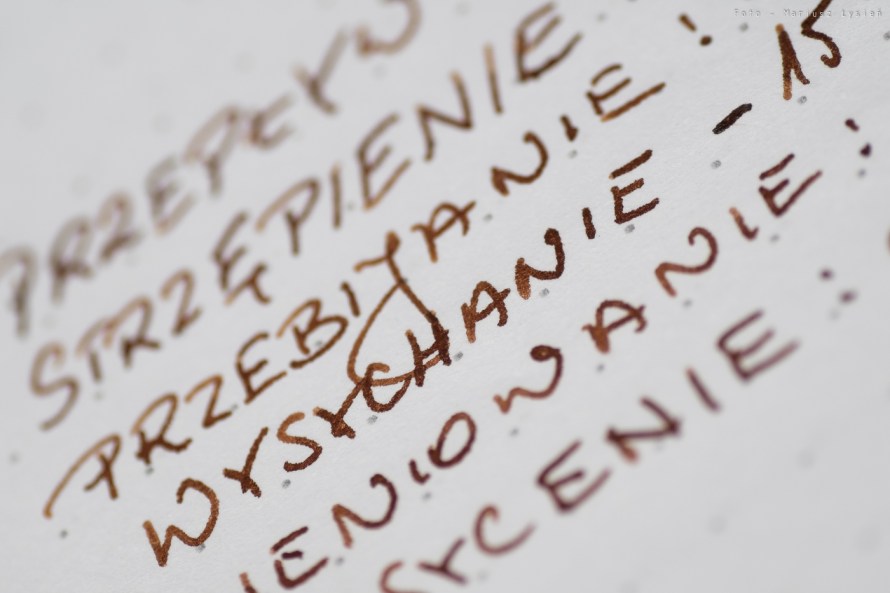 Foto - Mateusz Łysień
PRZEPŁYW
STRZĘPIENIE
PRZEBIJANIE :
WYSYCHANIE - 15
IENIOWANIE :
SYCENIE :